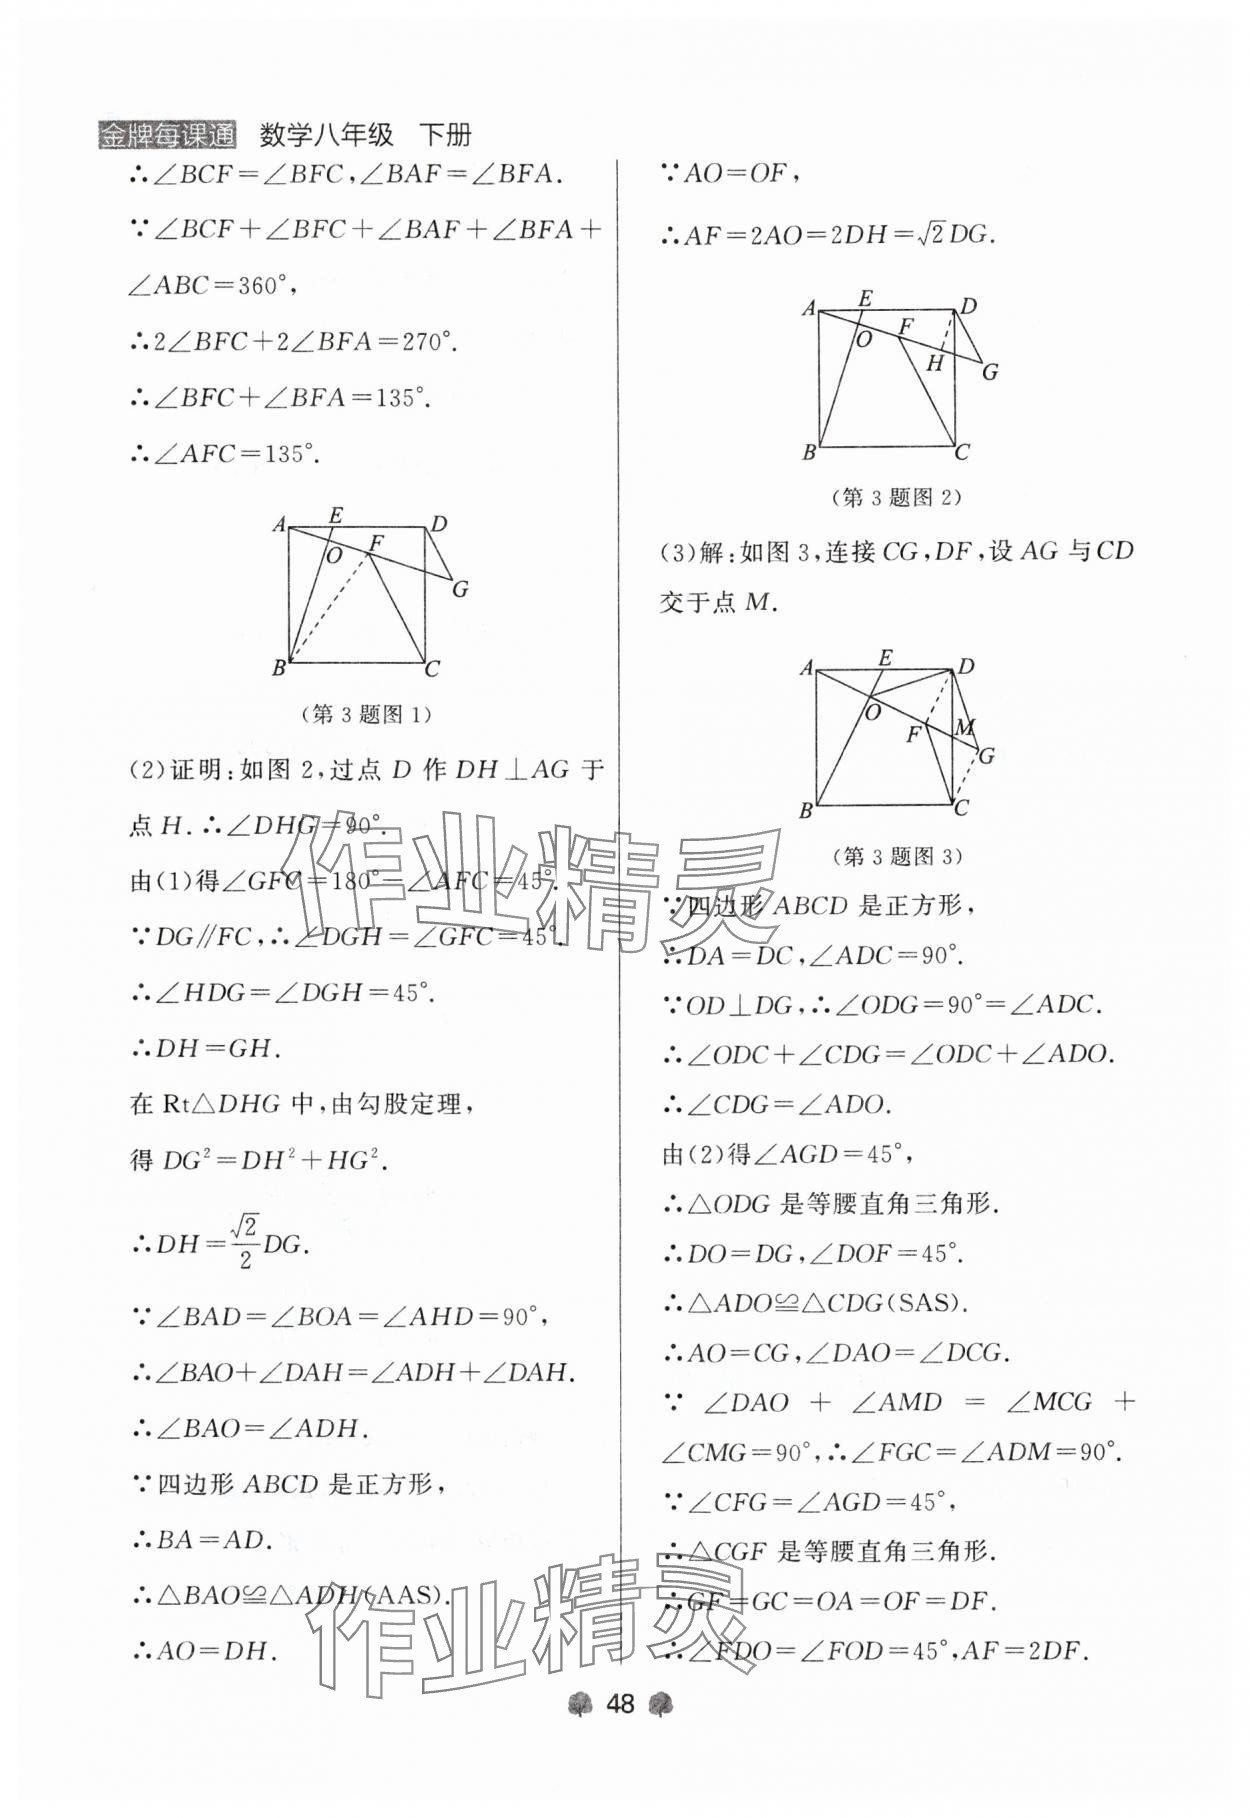 金牌每课通 数学八年级 下册
∴∠BCF=∠BFC,∠BAF=∠BFA.
∵∠BCF+∠BFC+∠BAF+∠BFA+
∠ABC=360°,
∴2∠BFC+2∠BFA=270°.
∴∠BFC+∠BFA=135°.
∴∠AFC=135°.
A E D
O F
G
B C
(第3题图1)
(2)证明:如图2,过点D作DH⊥AG于
点H.∴∠DHG=90°.
由(1)得∠GFC=180°-∠AFC=45°.
∵DG∥FC,∴∠DGH=∠GFC=45°.
∴∠HDG=∠DGH=45°.
∴DH=GH.
在Rt△DHG中,由勾股定理,
得DG²=DH²+HG².
∴DH=√2/2 DG.
∵∠BAD=∠BOA=∠AHD=90°,
∴∠BAO+∠DAH=∠ADH+∠DAH.
∴∠BAO=∠ADH.
∵四边形ABCD是正方形,
∴BA=AD.
∴△BAO≌△ADH(AAS).
∴AO=DH.
∵AO=OF,
∴AF=2AO=2DH=√2DG.
A E D
O F
H G
B C
(第3题图2)
(3)解:如图3,连接CG,DF,设AG与CD
交于点M.
A E D
O
F M
G
B C
(第3题图3)
∵四边形ABCD是正方形,
∴DA=DC,∠ADC=90°.
∵OD⊥DG,∴∠ODG=90°=∠ADC.
∴∠ODC+∠CDG=∠ODC+∠ADO.
∴∠CDG=∠ADO.
由(2)得∠AGD=45°,
∴△ODG是等腰直角三角形.
∴DO=DG,∠DOF=45°.
∴△ADO≌△CDG(SAS).
∴AO=CG,∠DAO=∠DCG.
∵ ∠DAO + ∠AMD = ∠MCG +
∠CMG=90°,∴∠FGC=∠ADM=90°.
∵∠CFG=∠AGD=45°,
∴△CGF是等腰直角三角形.
∴GF=GC=OA=OF=DF.
∴∠FDO=∠FOD=45°,AF=2DF.
作业精灵
作业精灵
48